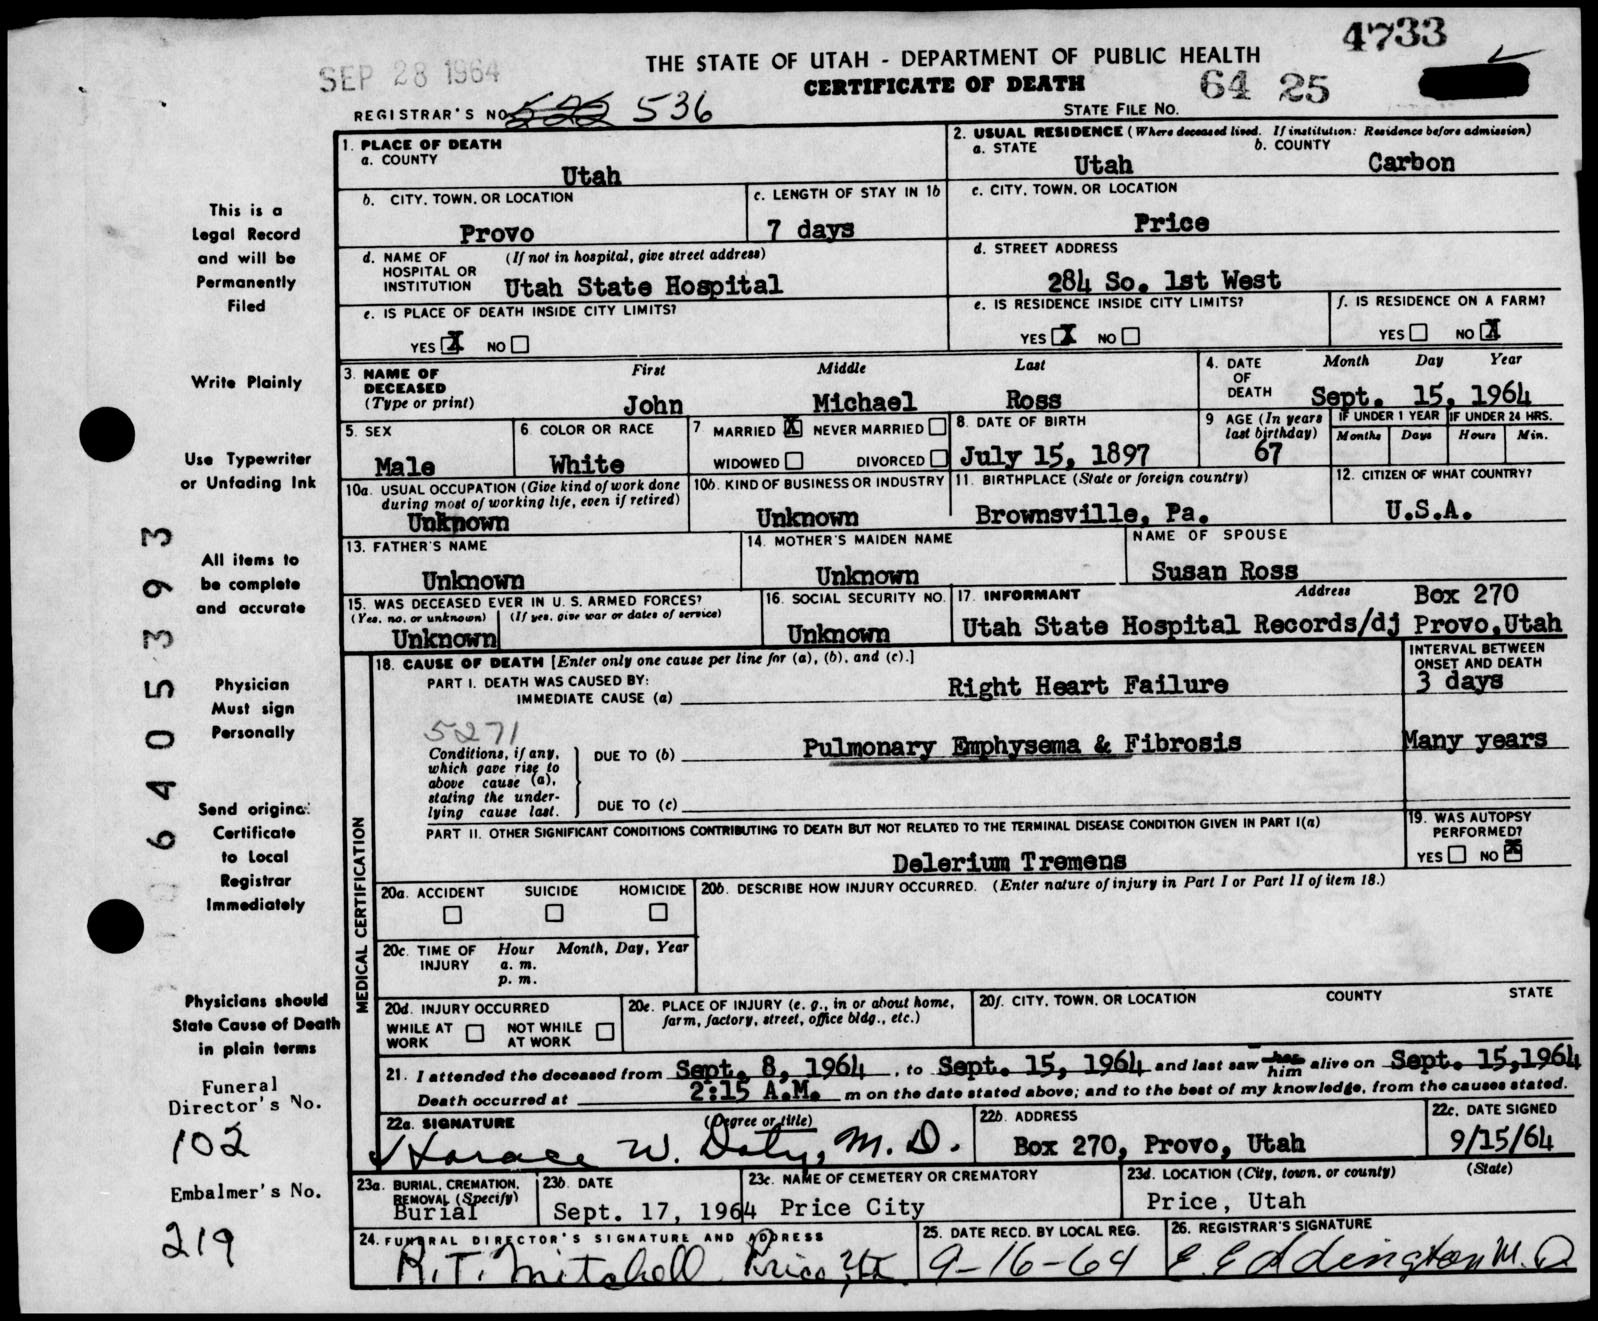 4733
SEP 28 1964
THE STATE OF UTAH - DEPARTMENT OF PUBLIC HEALTH
CERTIFICATE OF DEATH
64 25
REGISTRAR'S NO. 522 536
STATE FILE NO.
1. PLACE OF DEATH
a. COUNTY
Utah
2. USUAL RESIDENCE (Where deceased lived. If institution: Residence before admission)
a. STATE
Utah
b. COUNTY
Carbon
b. CITY, TOWN, OR LOCATION
Provo
c. LENGTH OF STAY IN 1b
7 days
c. CITY, TOWN, OR LOCATION
Price
d. NAME OF HOSPITAL OR INSTITUTION
(If not in hospital, give street address)
Utah State Hospital
d. STREET ADDRESS
284 So. 1st West
e. IS PLACE OF DEATH INSIDE CITY LIMITS?
YES X NO
e. IS RESIDENCE INSIDE CITY LIMITS?
YES X NO
f. IS RESIDENCE ON A FARM?
YES NO X
3. NAME OF DECEASED
(Type or print)
First Middle Last
John Michael Ross
4. DATE OF DEATH
Month Day Year
Sept. 15, 1964
5. SEX
Male
6 COLOR OR RACE
White
7 MARRIED X NEVER MARRIED
WIDOWED DIVORCED
8. DATE OF BIRTH
July 15, 1897
9 AGE (In years last birthday)
67
IF UNDER 1 YEAR
Months Days
IF UNDER 24 HRS.
Hours Min.
10a. USUAL OCCUPATION (Give kind of work done during most of working life, even if retired)
Unknown
10b. KIND OF BUSINESS OR INDUSTRY
Unknown
11. BIRTHPLACE (State or foreign country)
Brownsville, Pa.
12. CITIZEN OF WHAT COUNTRY?
U.S.A.
13. FATHER'S NAME
Unknown
14. MOTHER'S MAIDEN NAME
Unknown
NAME OF SPOUSE
Susan Ross
15. WAS DECEASED EVER IN U. S. ARMED FORCES?
(Yes, no, or unknown) (If yes, give war or dates of service)
Unknown
16. SOCIAL SECURITY NO.
Unknown
17. INFORMANT Address
Box 270
Utah State Hospital Records/dj Provo, Utah
MEDICAL CERTIFICATION
18. CAUSE OF DEATH [Enter only one cause per line for (a), (b), and (c).]
PART I. DEATH WAS CAUSED BY:
IMMEDIATE CAUSE (a) Right Heart Failure
INTERVAL BETWEEN ONSET AND DEATH
3 days
5271
Conditions, if any, which gave rise to above cause (a), stating the underlying cause last.
DUE TO (b) Pulmonary Emphysema & Fibrosis
Many years
DUE TO (c)
PART II. OTHER SIGNIFICANT CONDITIONS CONTRIBUTING TO DEATH BUT NOT RELATED TO THE TERMINAL DISEASE CONDITION GIVEN IN PART I(a)
Delerium Tremens
19. WAS AUTOPSY PERFORMED?
YES NO X
20a. ACCIDENT SUICIDE HOMICIDE
20b. DESCRIBE HOW INJURY OCCURRED. (Enter nature of injury in Part I or Part II of item 18.)
20c. TIME OF INJURY
Hour Month, Day, Year
a. m.
p. m.
20d. INJURY OCCURRED
WHILE AT WORK NOT WHILE AT WORK
20e. PLACE OF INJURY (e. g., in or about home, farm, factory, street, office bldg., etc.)
20f. CITY, TOWN, OR LOCATION COUNTY STATE
21. I attended the deceased from Sept. 8, 1964, to Sept. 15, 1964 and last saw her him alive on Sept. 15, 1964
Death occurred at 2:15 A.M. m on the date stated above; and to the best of my knowledge, from the causes stated.
22a. SIGNATURE (Degree or title)
Horace W. Doty, M.D.
22b. ADDRESS
Box 270, Provo, Utah
22c. DATE SIGNED
9/15/64
23a. BURIAL, CREMATION, REMOVAL (Specify)
Burial
23b. DATE
Sept. 17, 1964
23c. NAME OF CEMETERY OR CREMATORY
Price City
23d. LOCATION (City, town, or county) (State)
Price, Utah
24. FUNERAL DIRECTOR'S SIGNATURE AND ADDRESS
R.T. Mitchell Price, Ut.
25. DATE RECD. BY LOCAL REG.
9-16-64
26. REGISTRAR'S SIGNATURE
E Eddington M.D.
This is a
Legal Record
and will be
Permanently
Filed
Write Plainly
Use Typewriter
or Unfading Ink
All items to
be complete
and accurate
Physician
Must sign
Personally
Send original
Certificate
to Local
Registrar
Immediately
Physicians should
State Cause of Death
in plain terms
Funeral
Director's No.
102
Embalmer's No.
219
64 05 393